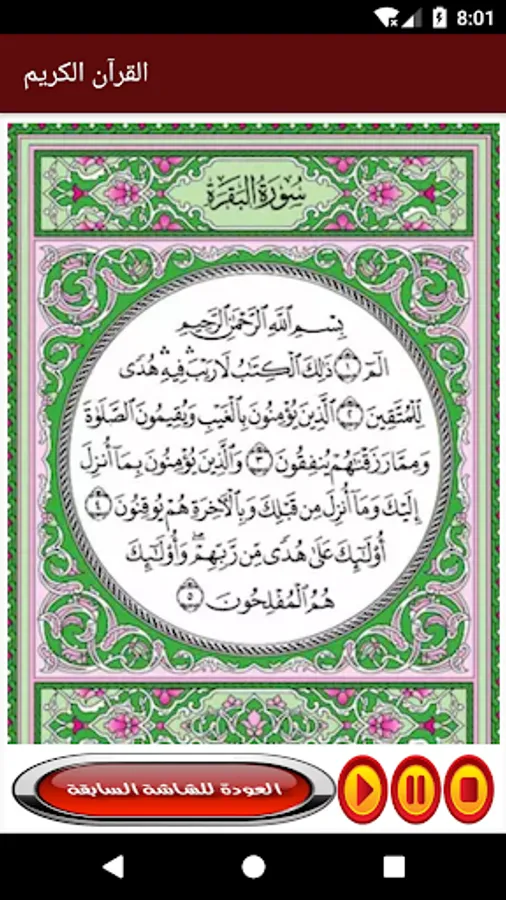 8:01
القرآن الكريم
سُورَةُ البَقَرَة
بِسْمِ ٱللَّهِ ٱلرَّحْمَٰنِ ٱلرَّحِيمِ
الٓمٓ ١ ذَٰلِكَ ٱلْكِتَٰبُ لَا رَيْبَ ۛ فِيهِ ۛ هُدًى
لِّلْمُتَّقِينَ ٢ ٱلَّذِينَ يُؤْمِنُونَ بِٱلْغَيْبِ وَيُقِيمُونَ ٱلصَّلَوٰةَ
وَمِمَّا رَزَقْنَٰهُمْ يُنفِقُونَ ٣ وَٱلَّذِينَ يُؤْمِنُونَ بِمَآ أُنزِلَ
إِلَيْكَ وَمَآ أُنزِلَ مِن قَبْلِكَ وَبِٱلْأَخِرَةِ هُمْ يُوقِنُونَ ٤
أُو۟لَٰٓئِكَ عَلَىٰ هُدًى مِّن رَّبِّهِمْ ۖ وَأُو۟لَٰٓئِكَ
هُمُ ٱلْمُفْلِحُونَ ٥
العودة للشاشة السابقة